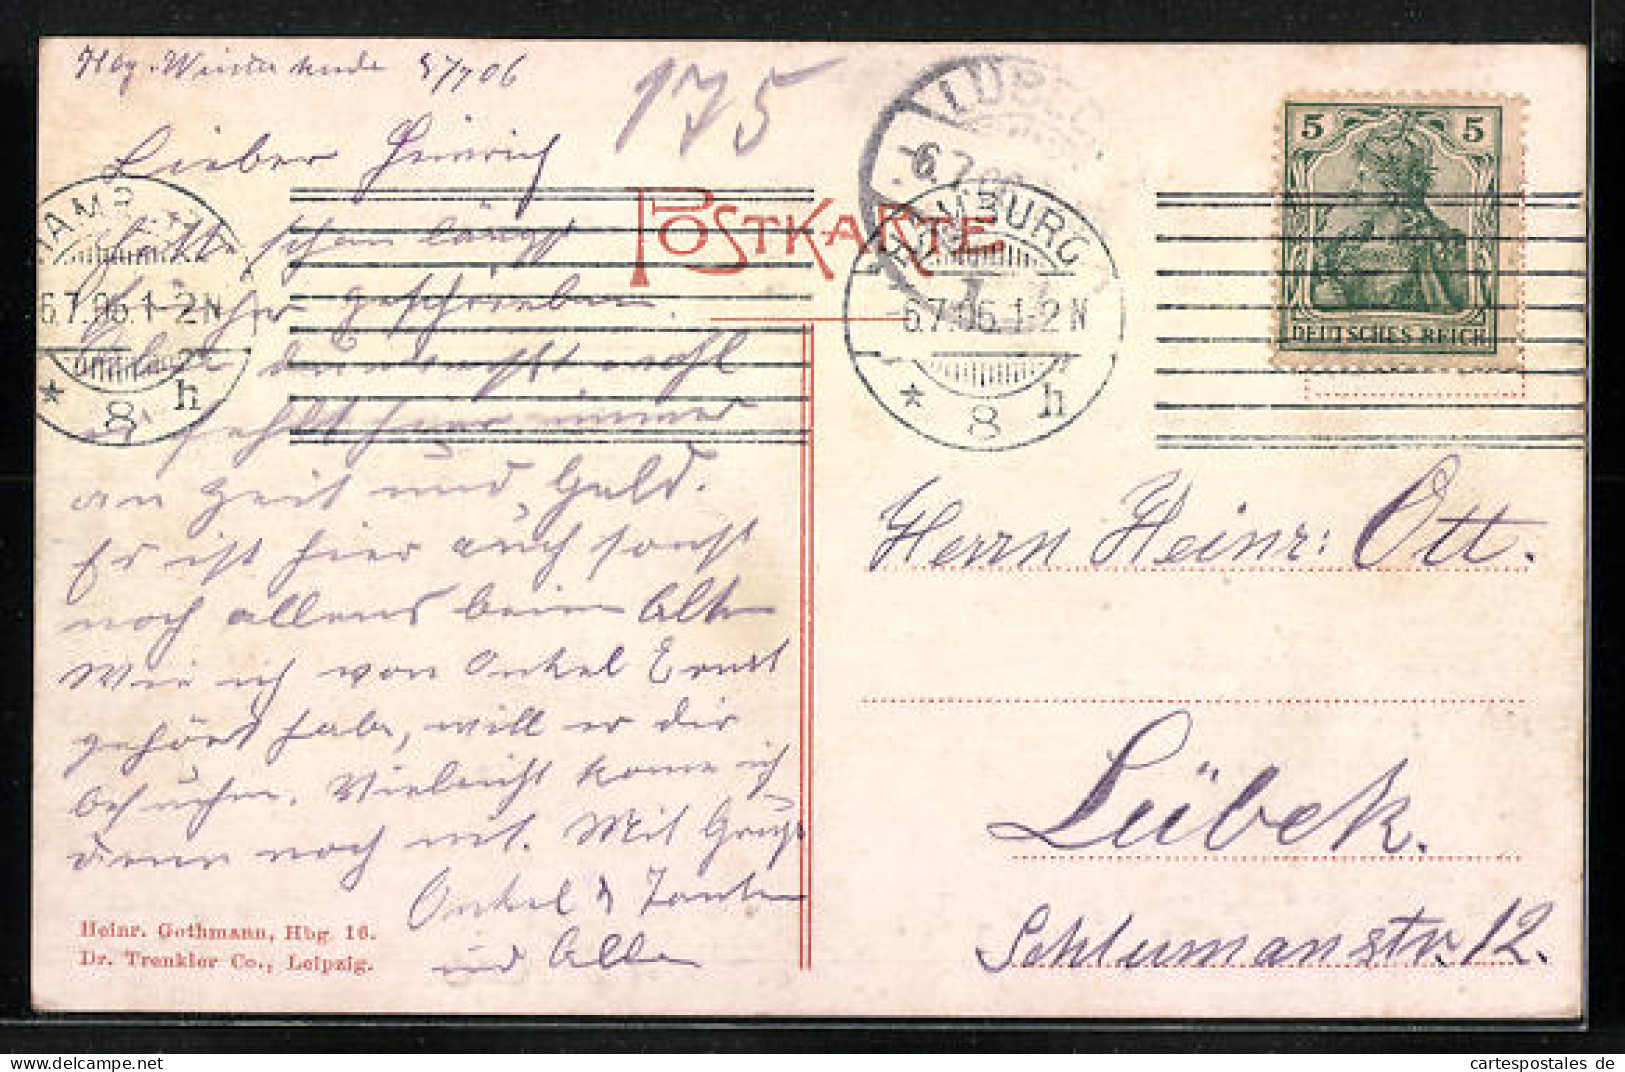 Hbg. Winterhude 5/7 06
175
Lieber Heinrich
hätte schon längst
früher geschrieben
aber du weißt wohl
es fehlt hier immer
an Zeit und Geld.
Es ist hier auch sonst
noch allens beim Alten
Wie ich von Onkel Ernst
gehört habe, will er dir
besuchen. Vieleicht kome ich
denn noch mit. Mit Gruß
Onkel & Tante
und Alle
Heinr. Gothmann, Hbg 16.
Dr. Trenkler Co., Leipzig.
HAMBURG
6.7.06.1-2N
* 8 h
POSTKARTE
LÜBECK
-6.7.06
HAMBURG
-6.7.06.1-2N
* 8 h
5 5
DEUTSCHES REICH
Herrn Heinr: Ott.
Lübek.
Schlumanstr. 12.
cartespostales de